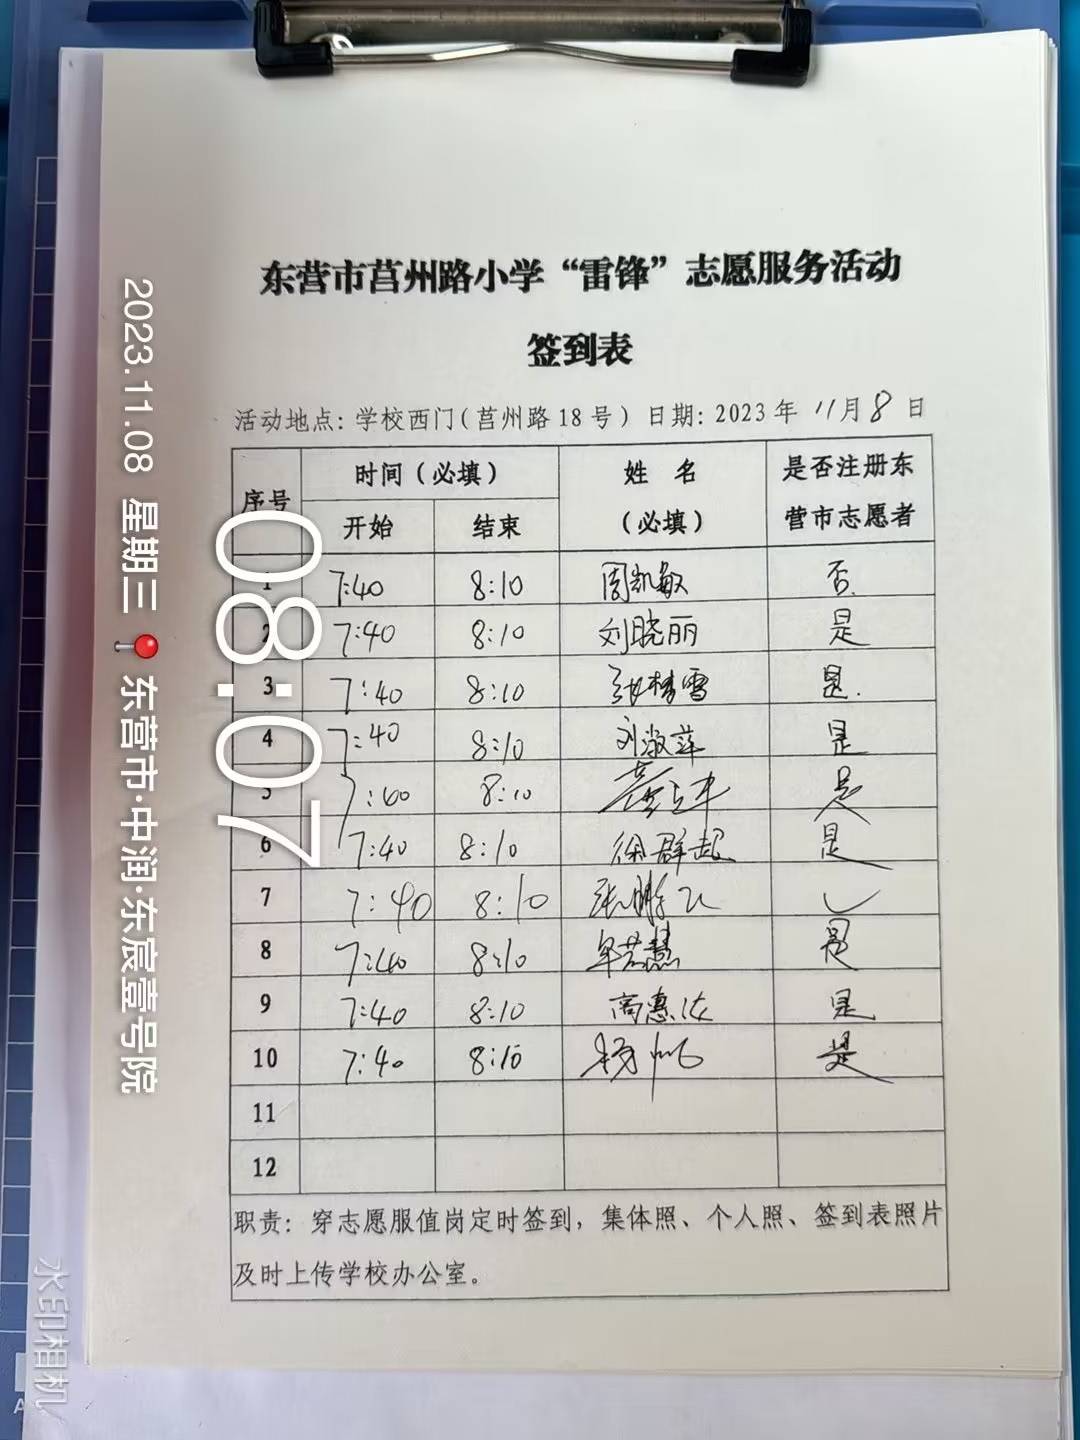 东营市莒州路小学“雷锋”志愿服务活动
签到表
活动地点: 学校西门(莒州路18号) 日期: 2023年 11月 8 日
序号 时间(必填) 姓名(必填) 是否注册东营市志愿者
开始 结束
1 7:40 8:10 周凯敏 否
2 7:40 8:10 刘晓丽 是
3 7:40 8:10 是.
4 7:40 8:10 刘淑萍 是
5 8:10 是
6 7:40 8:10 徐群起 是
7 7:40 8:10 张鹏飞
8 7:40 8:10 牟若慧 是
9 7:40 8:10 高惠 是
10 7:40 8:10 杨帆 是
11
12
职责: 穿志愿服值岗定时签到, 集体照、个人照、签到表照片
及时上传学校办公室。
2023.11.08 星期三 东营市·中润·东宸壹号院
08:07
水印相机